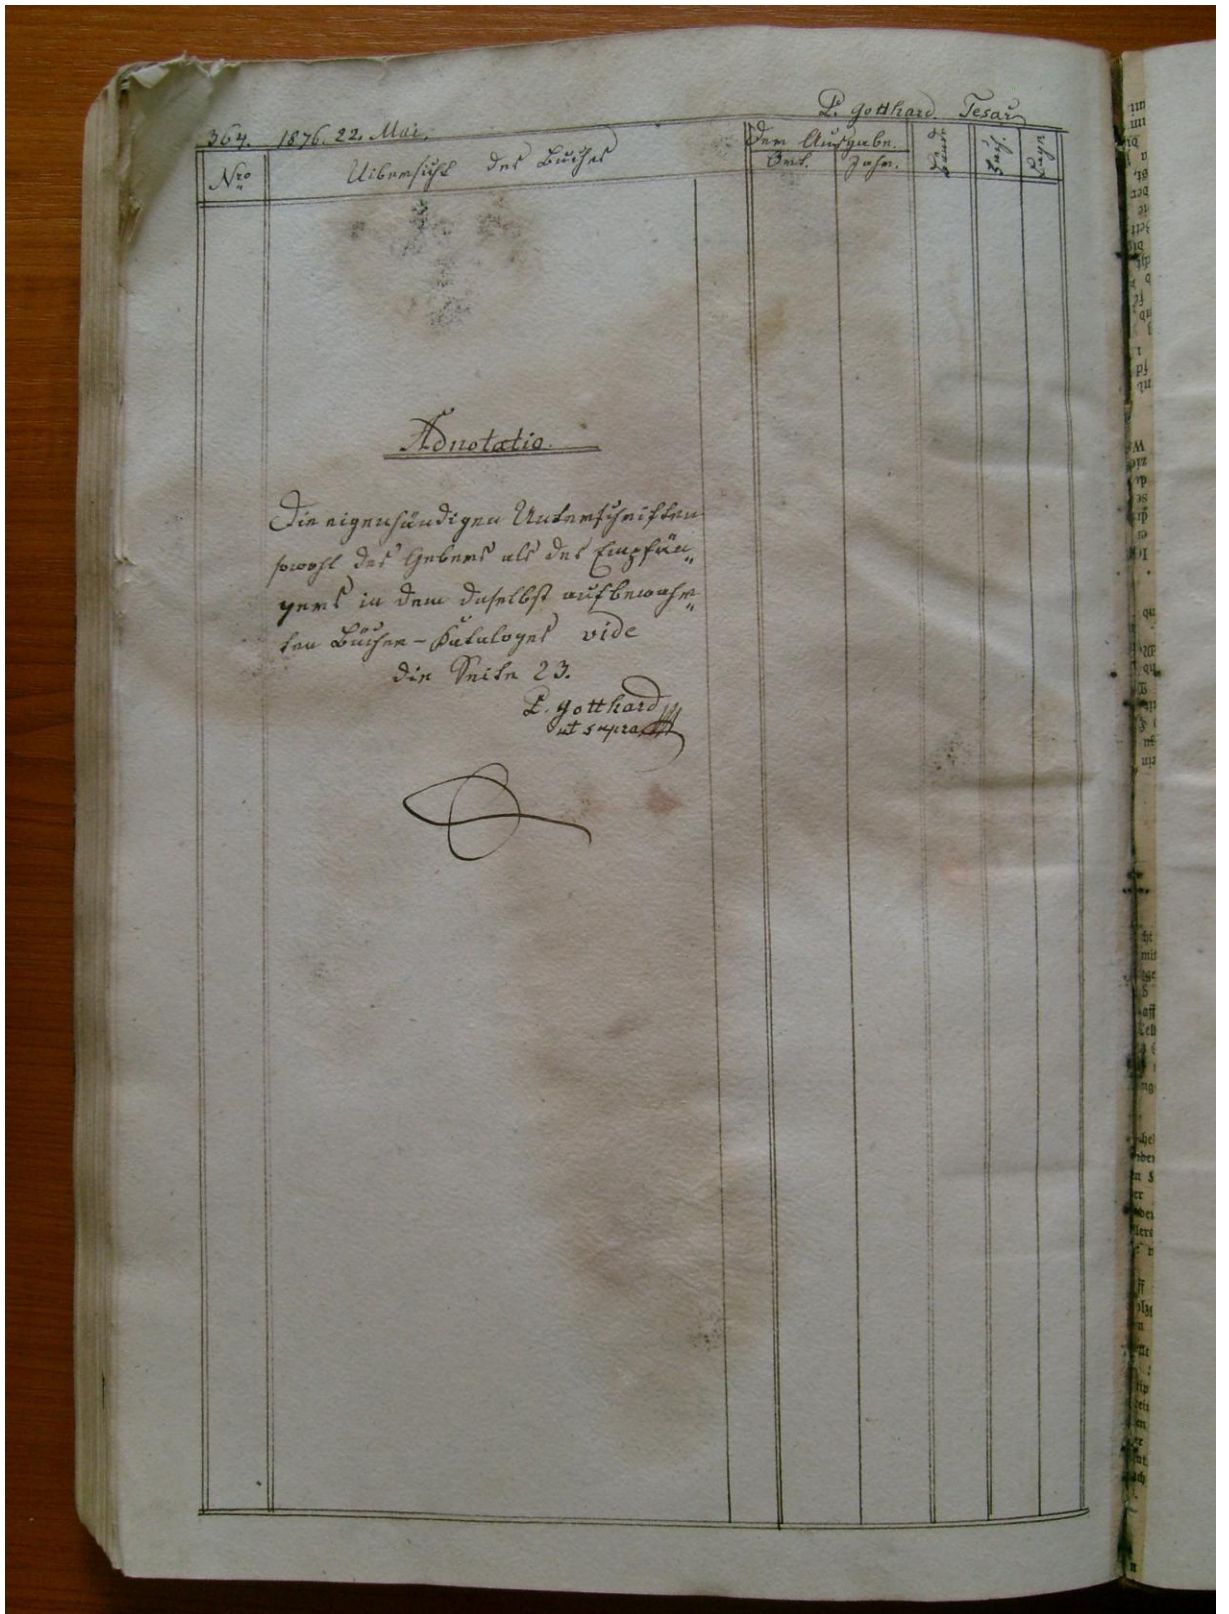 P. Gotthard Tesař
364. 1876. 22. Mai.
Nro
Uibersicht des Buches
Der Ausgabe.
Ort.
Jahr.
Band
Fach.
Adnotatio.
Die eigenhändigen Unterschriften
sowohl des Gebers als des Empfän„
gers in dem daselbst aufbewahr„
ten Bücher-Kataloges vide
die Seite 23.
P. Gotthard
ut supra